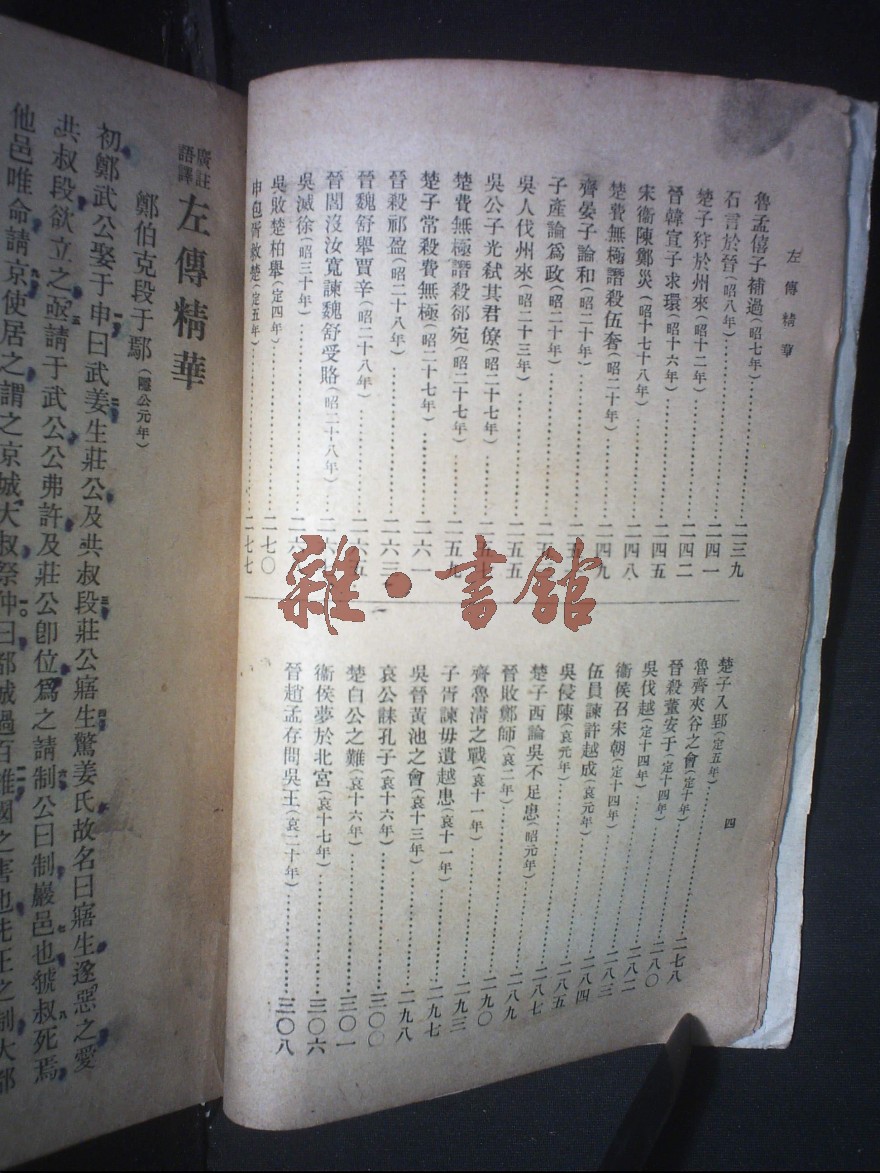 左傳精華
魯孟僖子補過(昭七年)……二三九
石言於晉(昭八年)……二四一
楚子狩於州來(昭十二年)……二四二
晉韓宣子求環(昭十六年)……二四五
宋衞陳鄭災(昭十七十八年)……二四八
楚費無極譖殺伍奢(昭二十年)……二四九
齊晏子論和(昭二十年)……二五
子產論爲政(昭二十年)……二五
吳人伐州來(昭二十三年)……二五五
吳公子光弒其君僚(昭二十七年)……二五七
楚費無極譖殺郤宛(昭二十七年)……二五九
楚子常殺費無極(昭二十七年)……二六一
晉殺祁盈(昭二十八年)……二六三
晉魏舒舉賈辛(昭二十八年)……二六五
晉閻沒汝寬諫魏舒受賂(昭二十八年)……二六
吳滅徐(昭三十年)……二六
吳敗楚柏舉(定四年)……二七〇
申包胥救楚(定五年)……二七七
楚子入郢(定五年)……二七八
魯齊夾谷之會(定十年)……二八〇
晉殺董安于(定十四年)……二八二
吳伐越(定十四年)……二八三
衞侯召宋朝(定十四年)……二八四
伍員諫許越成(哀元年)……二八五
吳侵陳(哀元年)……二八七
楚子西論吳不足患(昭元年)……二八九
晉敗鄭師(哀二年)……二九〇
齊魯淸之戰(哀十一年)……二九三
子胥諫毋遺越患(哀十一年)……二九七
吳晉黃池之會(哀十三年)……二九八
哀公誄孔子(哀十六年)……三〇〇
楚白公之難(哀十六年)……三〇一
衞侯夢於北宮(哀十七年)……三〇六
晉趙孟存問吳王(哀二十年)……三〇八
四
廣註
語譯
左傳精華
鄭伯克段于鄢(隱公元年)
初鄭武公娶于申曰武姜生莊公及共叔段莊公寤生驚姜氏故名曰寤生遂惡之愛
共叔段欲立之亟請于武公公弗許及莊公卽位爲之請制公曰制巖邑也虢叔死焉
他邑唯命請京使居之謂之京城大叔祭仲曰都城過百雉國之害也先王之制大都
雜·書館